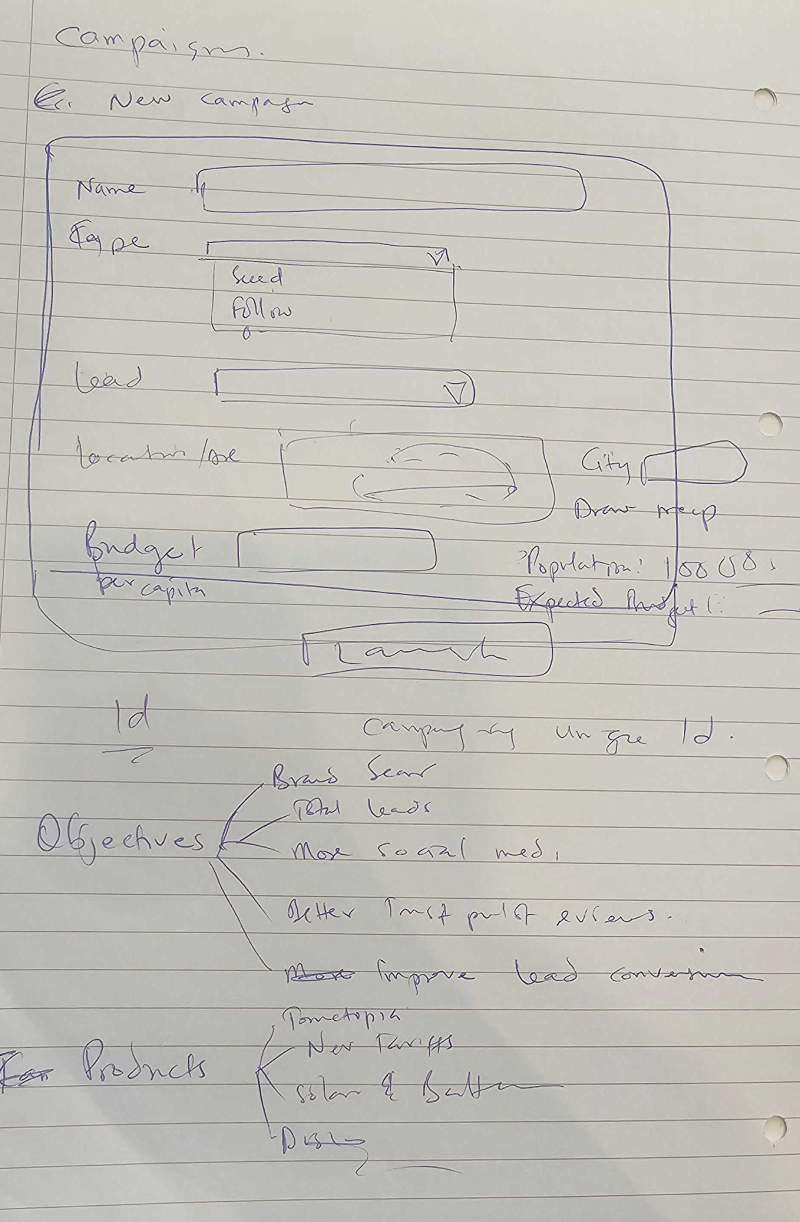 Campaigns.
New Campaign
Name
Type
Seed
Follow
Lead
Location /
City
Draw map
Budget
per capita
Population:
Expected Budget :
Launch
Id
Unique Id.
Objectives
Brand
Total leads
More social
Better Trust reviews.
More Improve lead conversion
Products
New Tariffs
Solar &